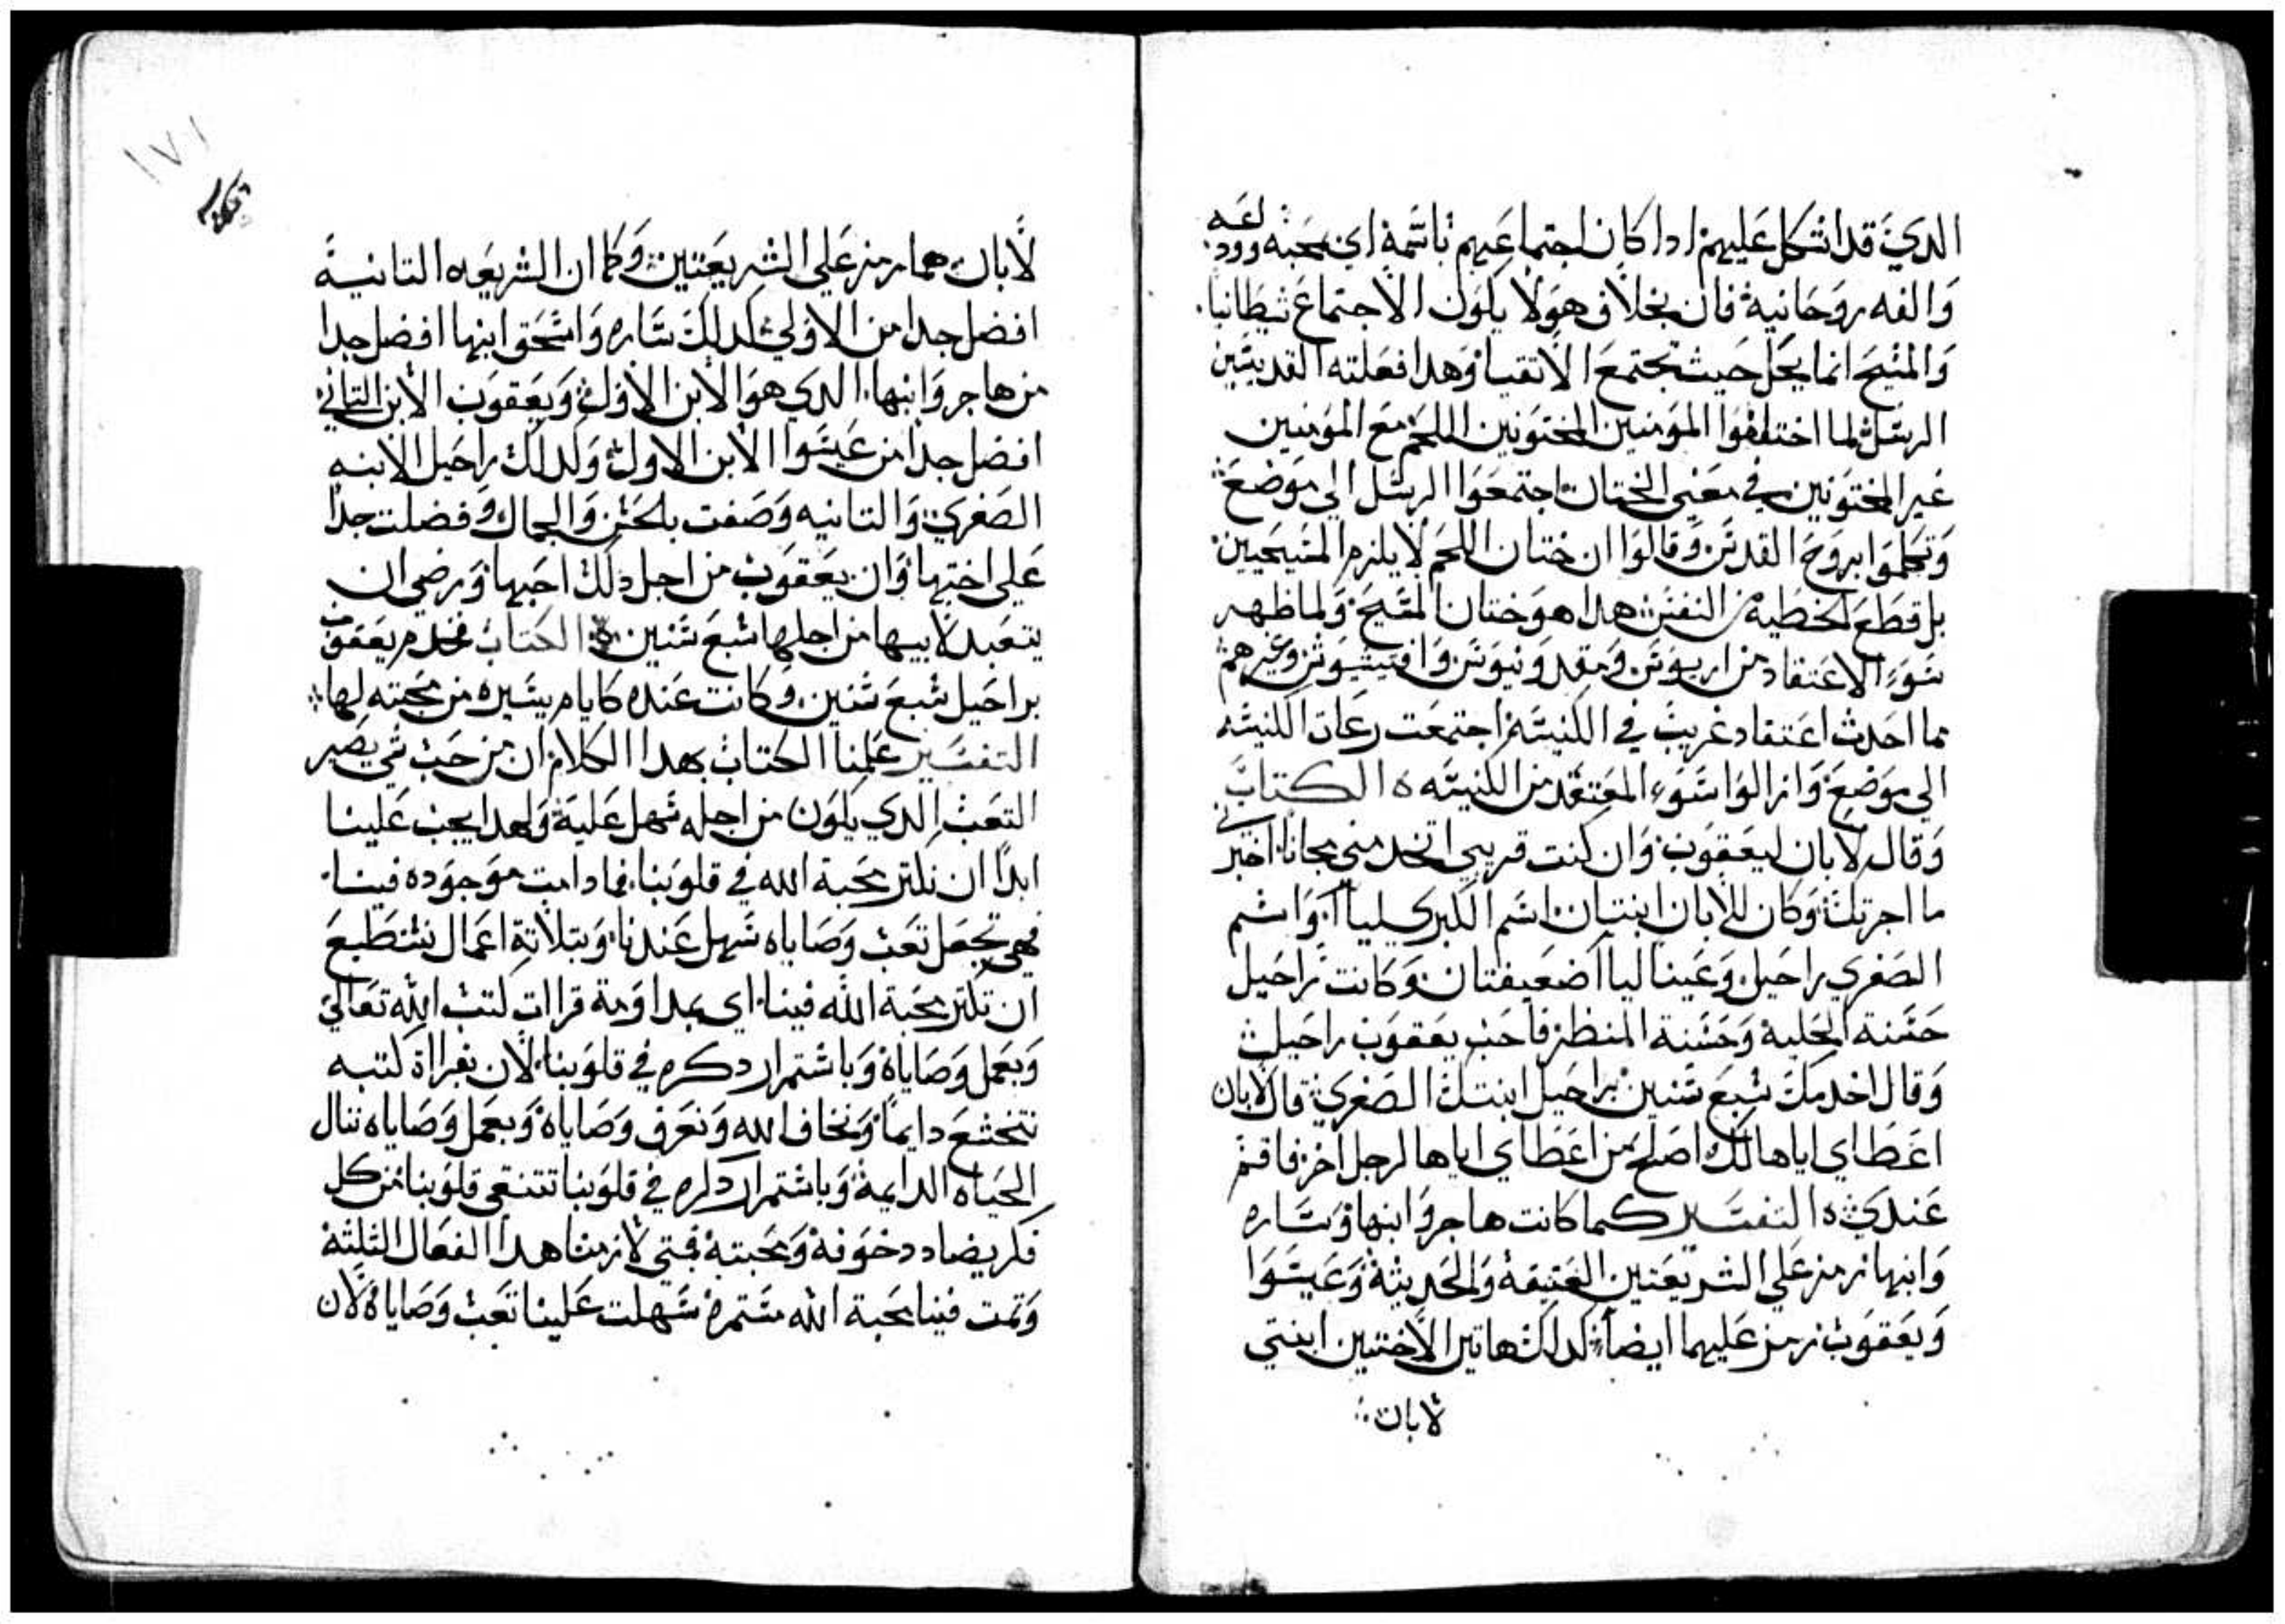 الدي قد اشكل عليهم ادا كان اجتماعهم باسمه اي بمحبه ودعه
والفه روحانيه فان بخلاف هولا يكون الاجتماع شيطانيا
والمسيح انما يحل حيث تجتمع الاتقيا وهدا فعلته القديسين
الرسل لما اختلفوا المومنين المختونين اللحم مع المومنين
غير المختونين في معني الختان اجتمعوا الرسل الي موضع
وتكلموا بروح القدس وقالوا ان ختان اللحم لا يلزم المسيحيين
بل قطع الخطيه من النفس هدا هو ختان المسيح ولما ظهر
سوء الاعتقاد من اريوس ومقدونيوس وافتيشيوس وغيرهم
مما احدث اعتقاد غريب في الكنيسه اجتمعت رعاة الكنيسه
الي موضع وازالوا سوء المعتقد من الكنيسه ه الكتاب
وقال لابان ليعقوب وان كنت قريبي اتخدمني مجانا اخبرني
ما اجرتك وكان للابان ابنتان اسم الكبري لياا واسم
الصغري راحيل وعينا لياا ضعيفتان وكانت راحيل
حسنة الحليه وحسنة المنظر فاحب يعقوب راحيل
وقال اخدمك سبع سنين براحيل ابنتك الصغري قال لابان
اعطاي اياها لك اصلح من اعطاي اياها لرجل اخر فاقم
عندي ه التفسير كما كانت هاجر وابنها وساره
وابنها رمز علي الشريعتين العتيقة والحديثة وعيسوا
ويعقوب رمز عليهما ايضا كدلك هاتين الاختين ابنتي
لابان
١٧١
لابان هما رمز علي الشريعتين وكما ان الشريعه التانية
افضل جدا من الاولي كدلك ساره واسحق ابنها افضل جدا
من هاجر وابنها الدي هو الابن الاول ويعقوب الابن التاني
افضل جدا من عيسوا الابن الاول وكدلك راحيل الابنه
الصغري والتانيه وصفت بالحسن والجمال وفضلت جدا
علي اختها وان يعقوب من اجل دلك احبها ورضي ان
يتعبد لابيها من اجلها سبع سنين ه الكتاب فخدم يعقوب
براحيل سبع سنين وكانت عنده كايام يسيره من محبته لها
التفسير علمنا الكتاب بهدا الكلام ان من حب شي يصير
التعب الدي يكون من اجله سهل عليه ولهدا يجب علينا
ابدا ان نكتر محبة الله في قلوبنا فما دامت موجوده فينا
فهي تجعل تعب وصاياه سهل عندنا وبتلاتة اعمال نستطيع
ان نكتر محبة الله فينا اي بمداومة قراات كتب الله تعالي
وبعمل وصاياه وباستمرار دكره في قلوبنا لان بقراة كتبه
نتخشع دايما ونخاف الله ونعرف وصاياه وبعمل وصاياه ننال
الحياه الدايمة وباستمرار دكره في قلوبنا تتنقي قلوبنا من كل
فكر يضادد خوفه ومحبته فمتي لازمنا هدا الفعال التلتة
وتمت فينا محبة الله مستمرة سهلت علينا تعب وصاياه لان